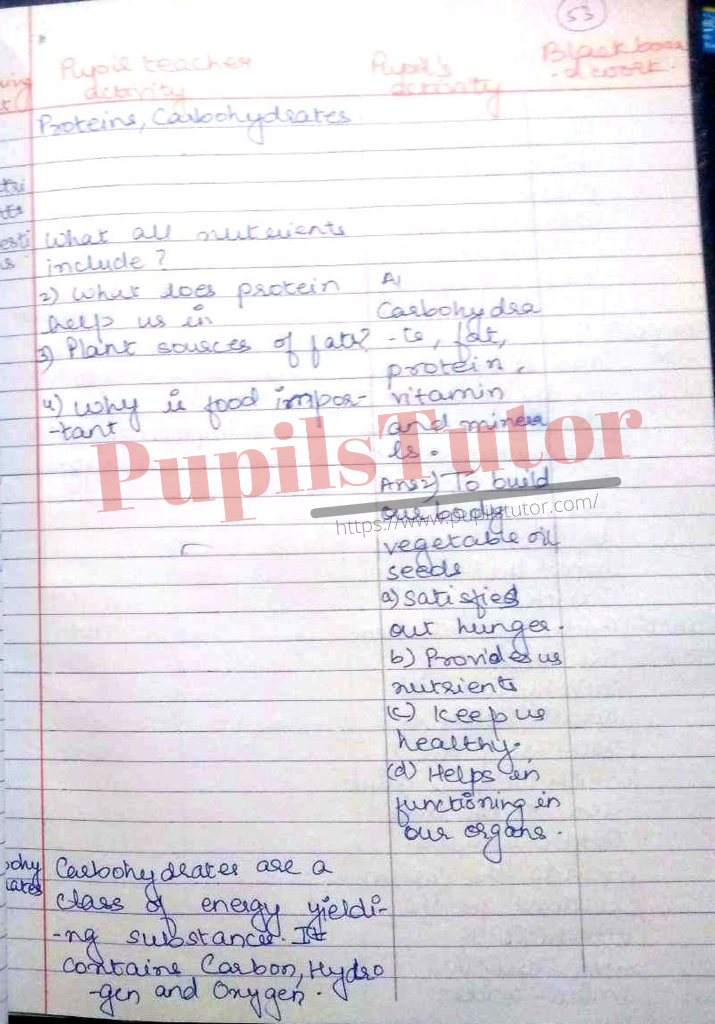 53
Pupil teacher
activity
Pupil's
activity
Black boar
-d work.
Proteins, Carbohydrates
What all nutrients
include?
2) What does protein
help us in
3) Plant sources of fats?
4) Why is food impor-
-tant
A1
Carbohydra
-te, fat,
protein,
vitamin
and minera
ls.
Ans2) To build
our body
vegetable oil
seeds
a) Satisfies
out hunger.
b) Provides us
nutrients
(c) Keep us
healthy.
(d) Helps in
functioning in
our organs.
PupilsTutor
https://www.pupilstutor.com/
ohy
rates
Carbohydrates are a
class of energy yieldi-
-ng substances. It
contains Carbon, Hydro
-gen and Oxygen.